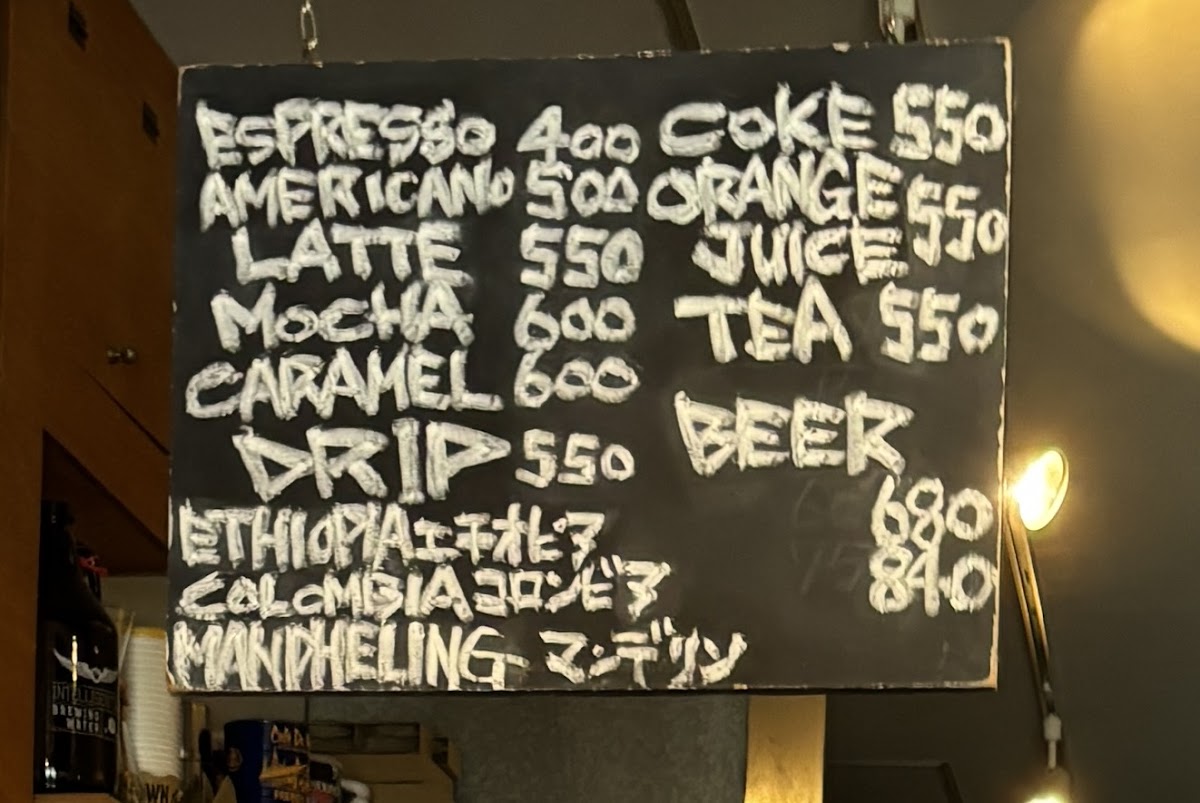 ESPRESSO 400
AMERICANO 500
LATTE 550
MOCHA 600
CARAMEL 600
DRIP 550
ETHIOPIA エチオピア
COLOMBIA コロンビア
MANDHELING マンデリン
COKE 550
ORANGE
JUICE 550
TEA 550
BEER
680
840
BREWING
WATER
WN